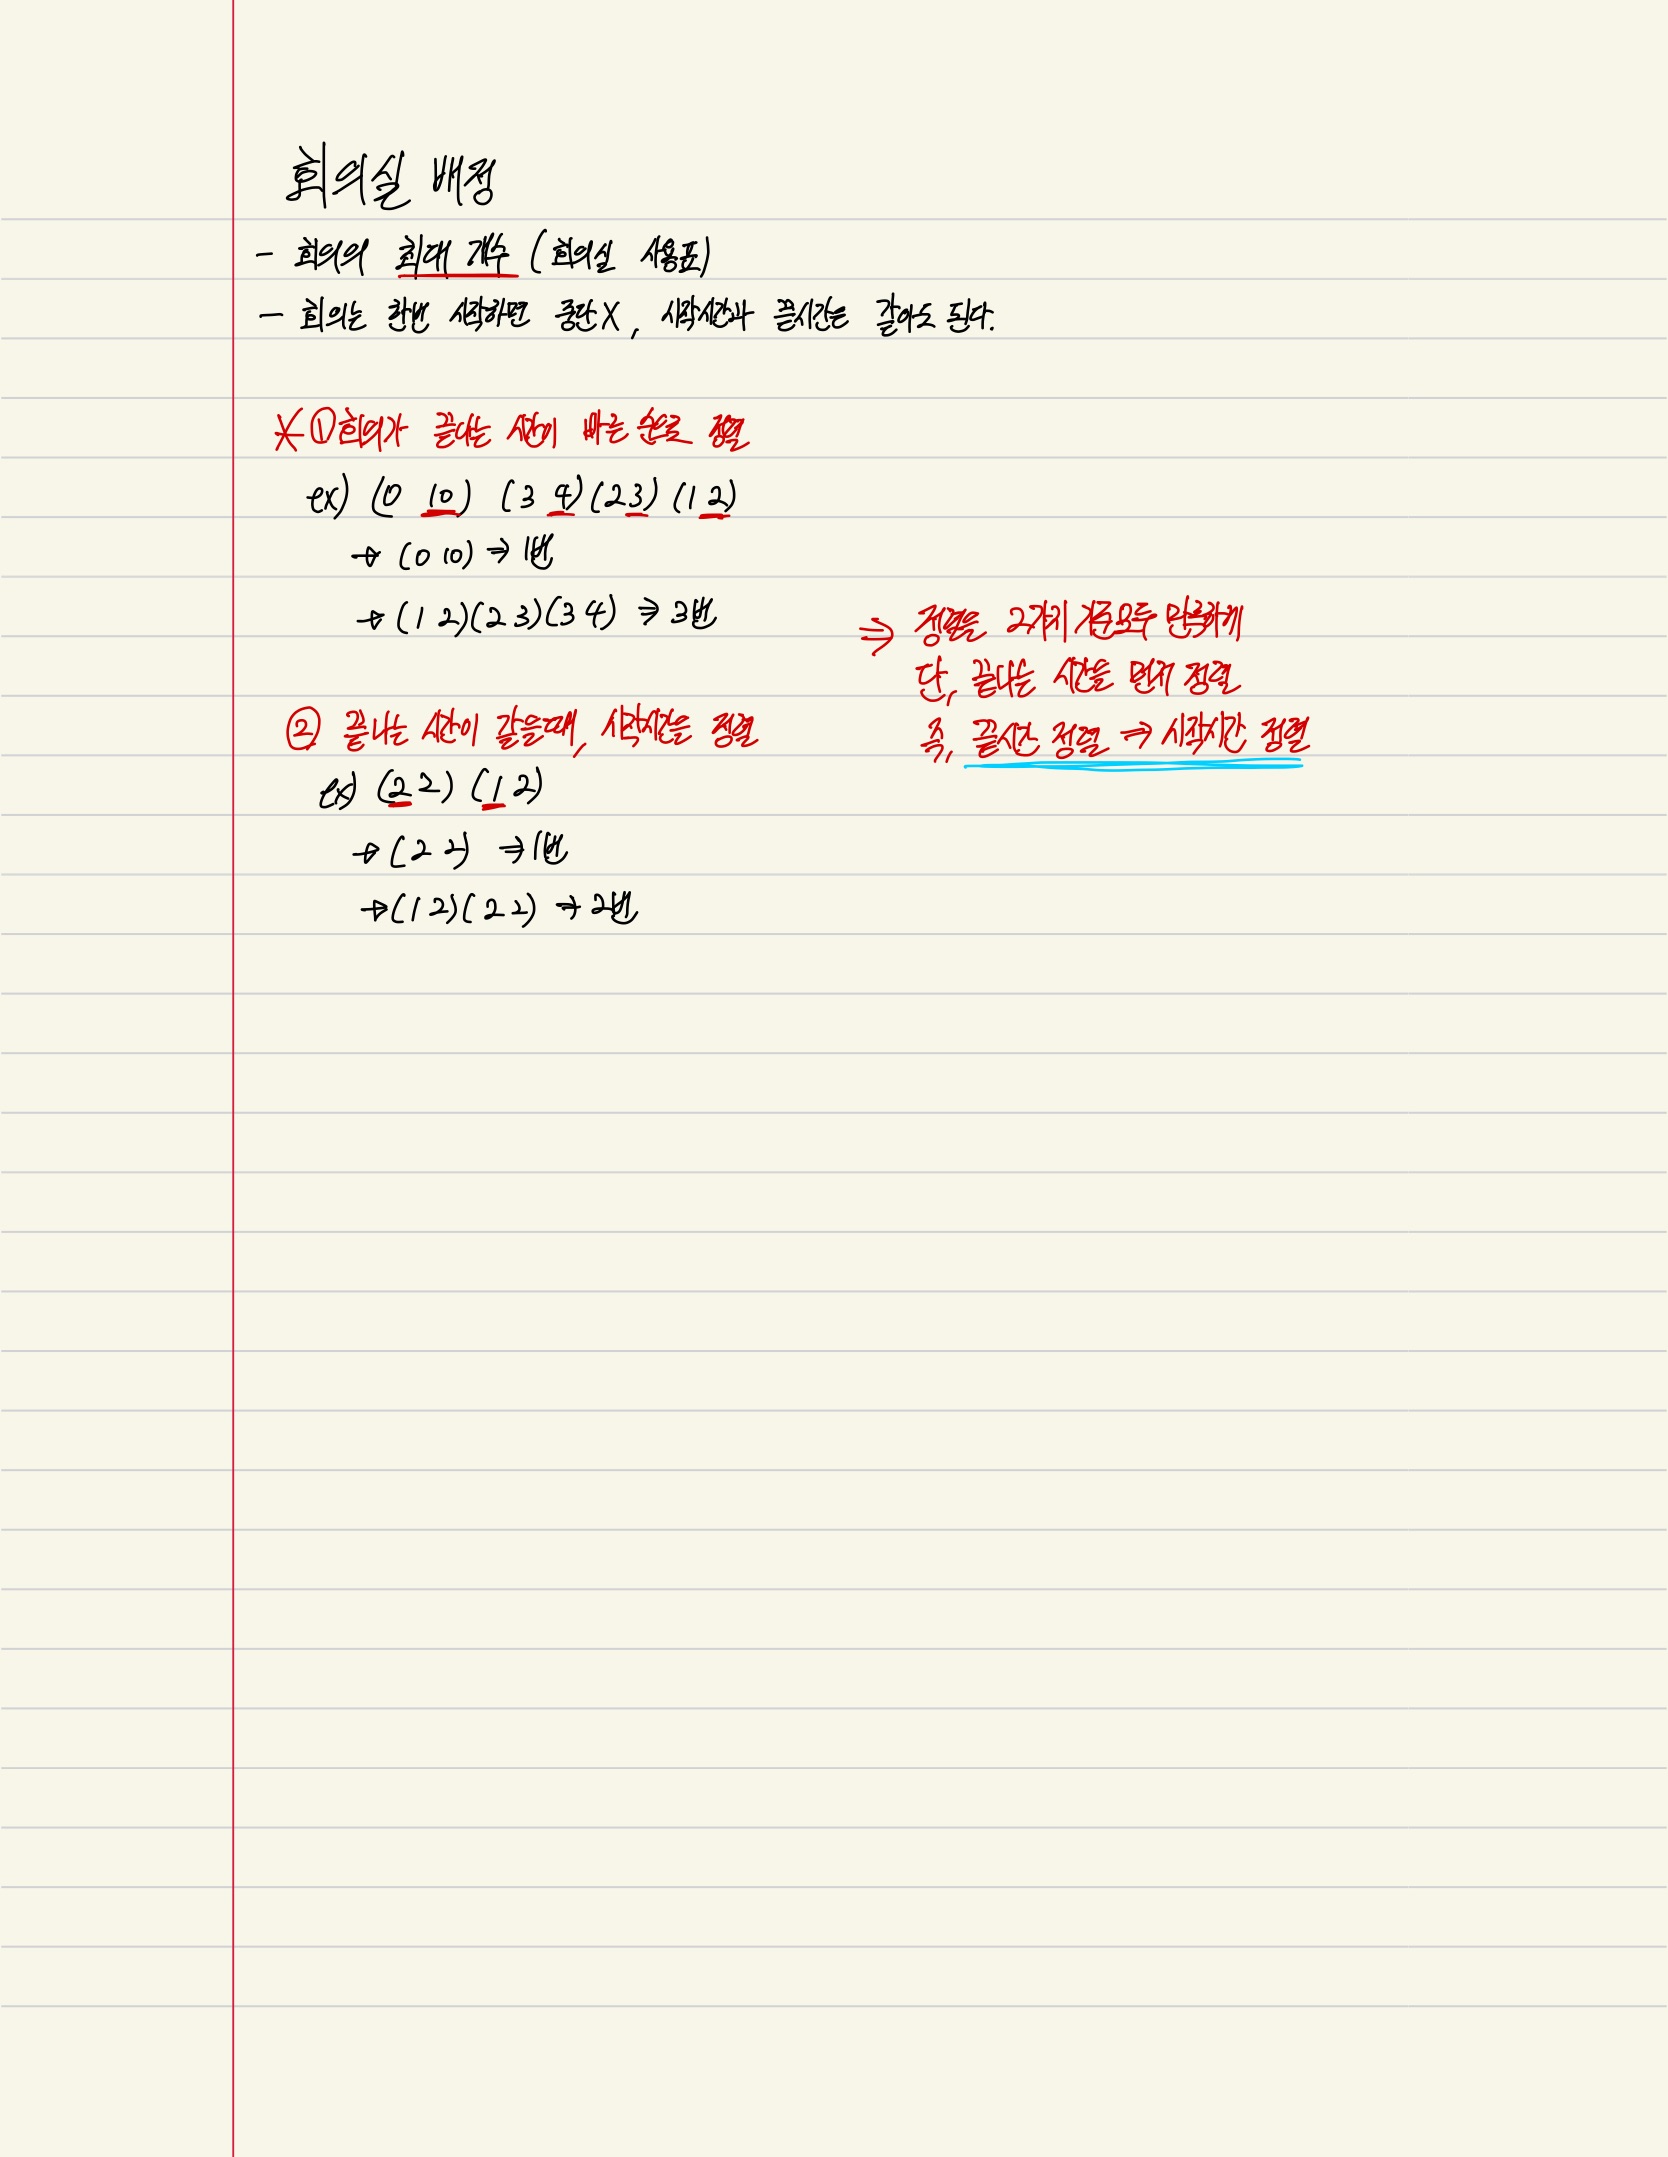 회의실 배정
- 회의의 최대 개수 (회의실 사용표)
- 회의는 한번 시작하면 중단X, 시작시간과 끝시간은 같아도 된다.
※ ① 회의가 끝나는 시간이 빠른 순으로 정렬
ex) (0 10) (3 4)(2 3) (1 2)
→ (0 10) ⇒ 1번
→ (1 2)(2 3)(3 4) ⇒ 3번
② 끝나는 시간이 같을때, 시작시간을 정렬
ex) (2 2) (1 2)
→ (2 2) ⇒ 1번
→ (1 2)(2 2) ⇒ 2번
⇒ 정렬을 2가지 기준모두 만족하게
단, 끝나는 시간을 먼저 정렬
즉, 끝시간 정렬 ⇒ 시작시간 정렬